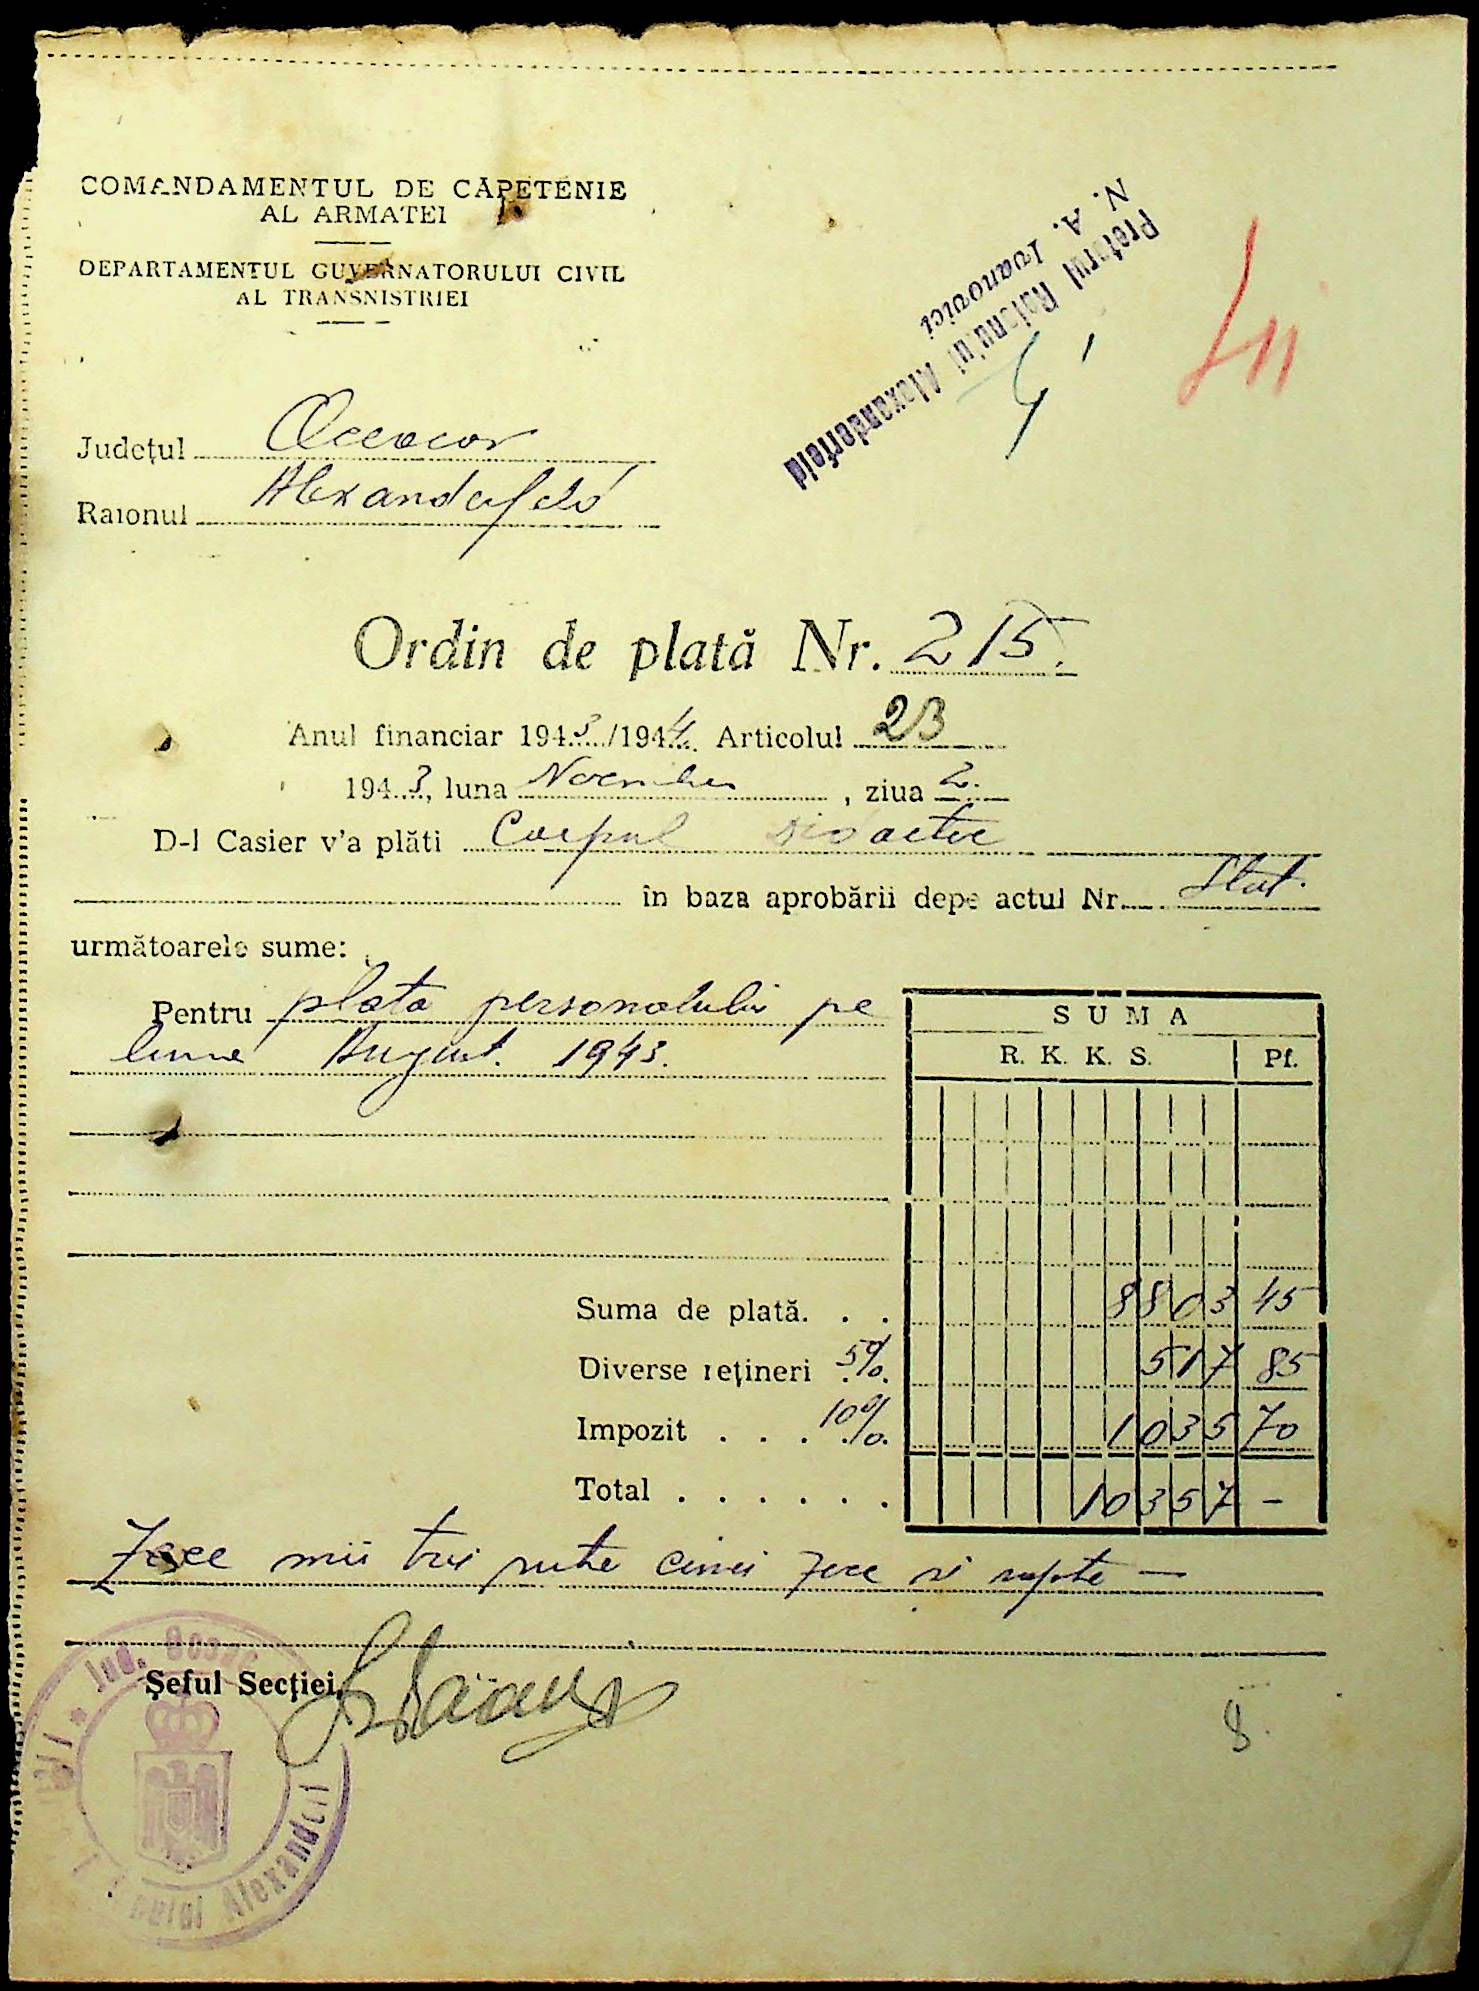 COMANDAMENTUL DE CAPETENIE
AL ARMATEI
DEPARTAMENTUL GUVERNATORULUI CIVIL
AL TRANSNISTRIEI
Pretorul Raionului Alexanderfeld
N. A. Ivanovici
Județul Oceacov
Raionul Alexanderfeld
Ordin de plată Nr. 215.
Anul financiar 1943/1944. Articolul 23
1943, luna Noembrie, ziua 2.
D-l Casier v'a plăti Corpul Didactic
în baza aprobării depe actul Nr. Stat.
următoarele sume:
Pentru plata personalului pe
luna August. 1943.
SUMA
R. K. K. S. Pf.
Suma de plată. . . 8803 45
Diverse rețineri 5% 517 85
Impozit . . . 10% 1035 70
Total . . . . . . 10357 -
Zece mii trei sute cinci zece si sapte —
Șeful Secției,
Jud. Oceac
Alexanderf
8.